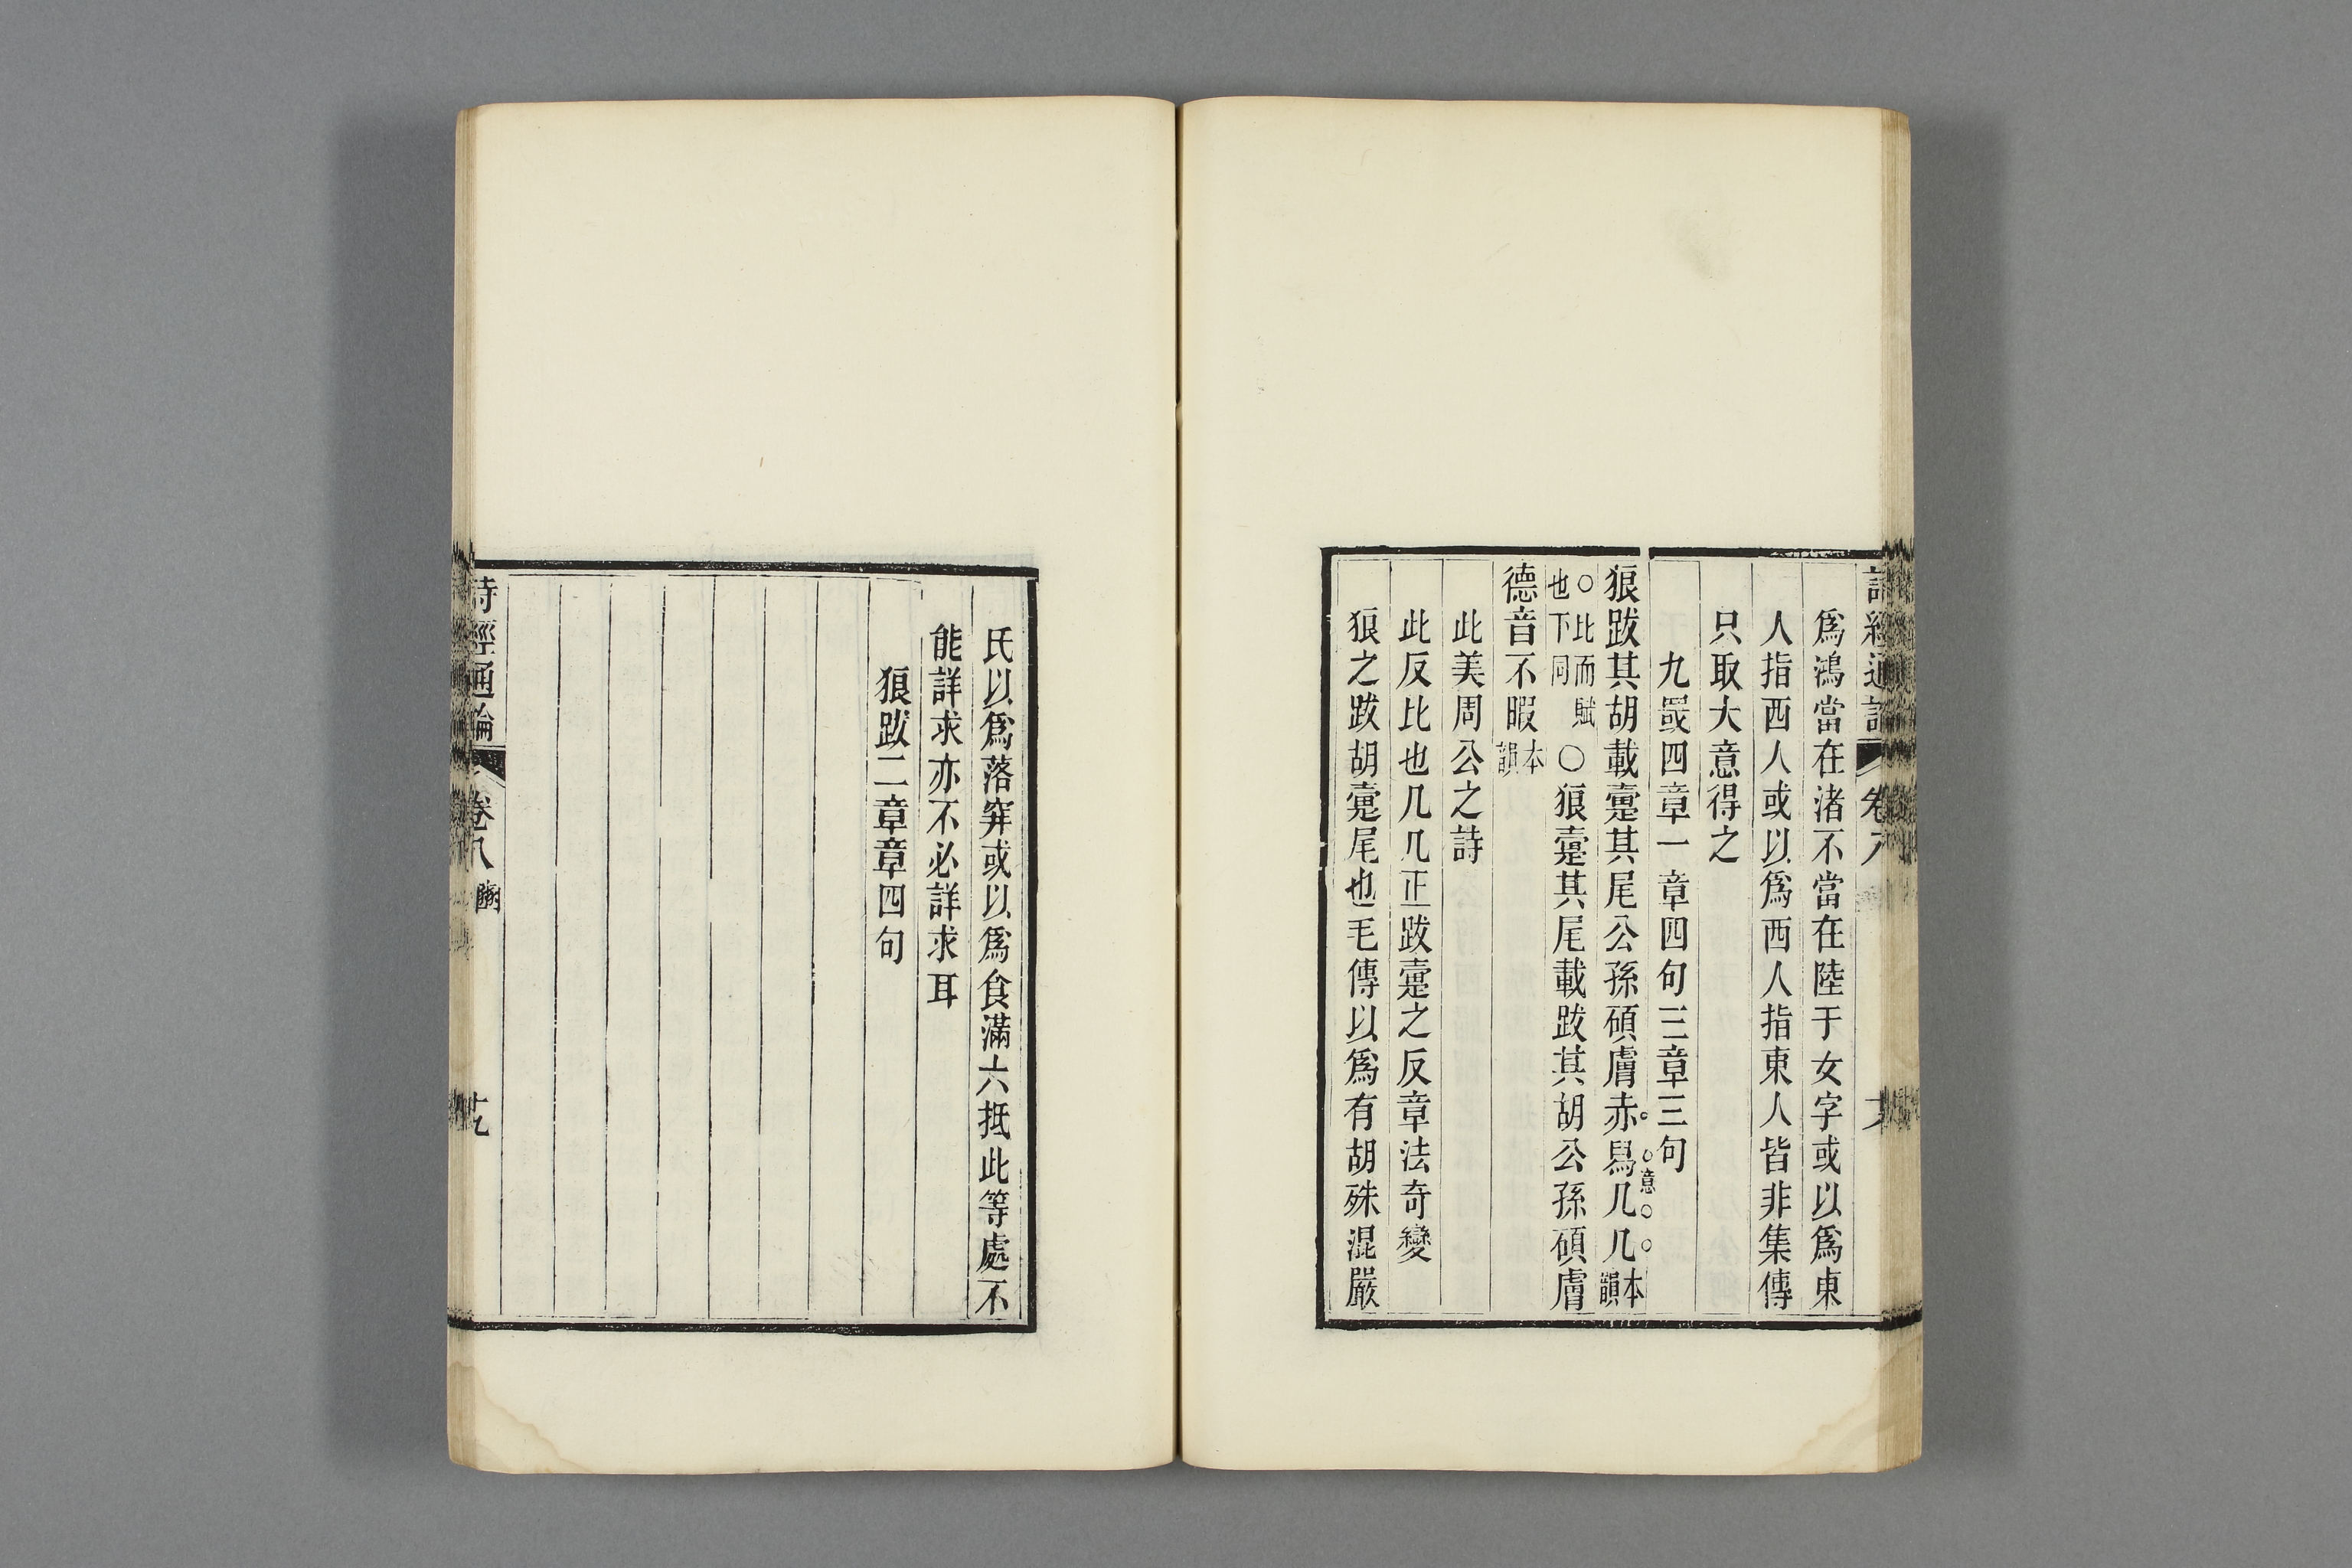 爲鴻當在渚不當在陸于女字或以爲東
人指西人或以爲西人指東人皆非集傳
只取大意得之
九罭四章一章四句三章三句
狼跋其胡載疐其尾公孫碩膚赤舄几几本韻
意
○比而賦也下同○狼疐其尾載跋其胡公孫碩膚
德音不暇本韻
此美周公之詩
此反比也几几正跋疐之反章法奇變
狼之跋胡疐尾也毛傳以爲有胡殊混嚴
氏以爲落穽或以爲食滿六抵此等處不
能詳求亦不必詳求耳
狼跋二章章四句
詩經通論 卷八 豳